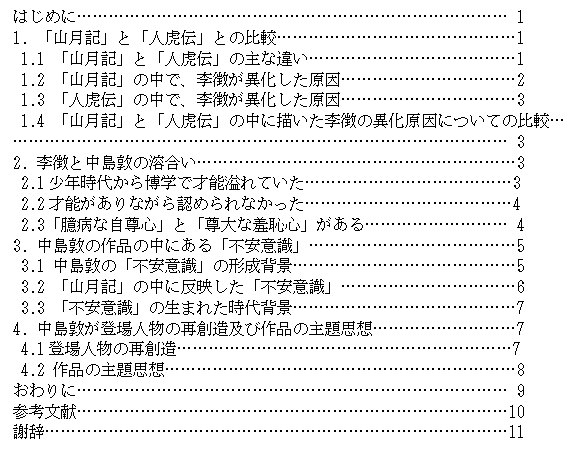 はじめに……………………………………………………………… 1
1．「山月記」と「人虎伝」との比較…………………………………1
1.1 「山月記」と「人虎伝」の主な違い………………………………1
1.2 「山月記」の中で、李徴が異化した原因…………………………2
1.3 「人虎伝」の中で、李徴が異化した原因…………………………3
1.4 「山月記」と「人虎伝」の中に描いた李徴の異化原因についての比較…
……………………………………………………………………… 3
2．李徴と中島敦の溶合い………………………………………………3
2.1少年時代から博学で才能溢れていた………………………………3
2.2才能がありながら認められなかった………………………………4
2.3「臆病な自尊心」と「尊大な羞恥心」がある…………………… 4
3．中島敦の作品の中にある「不安意識」……………………………5
3.1 中島敦の「不安意識」の形成背景…………………………………5
3.2 「山月記」の中に反映した「不安意識」…………………………6
3.3 「不安意識」の生まれた時代背景…………………………………7
4．中島敦が登場人物の再創造及び作品の主題思想…………………7
4.1登場人物の再創造……………………………………………………7
4.2 作品の主題思想………………………………………………………8
おわりに……………………………………………………………… 9
参考文献………………………………………………………………10
謝辞……………………………………………………………………11